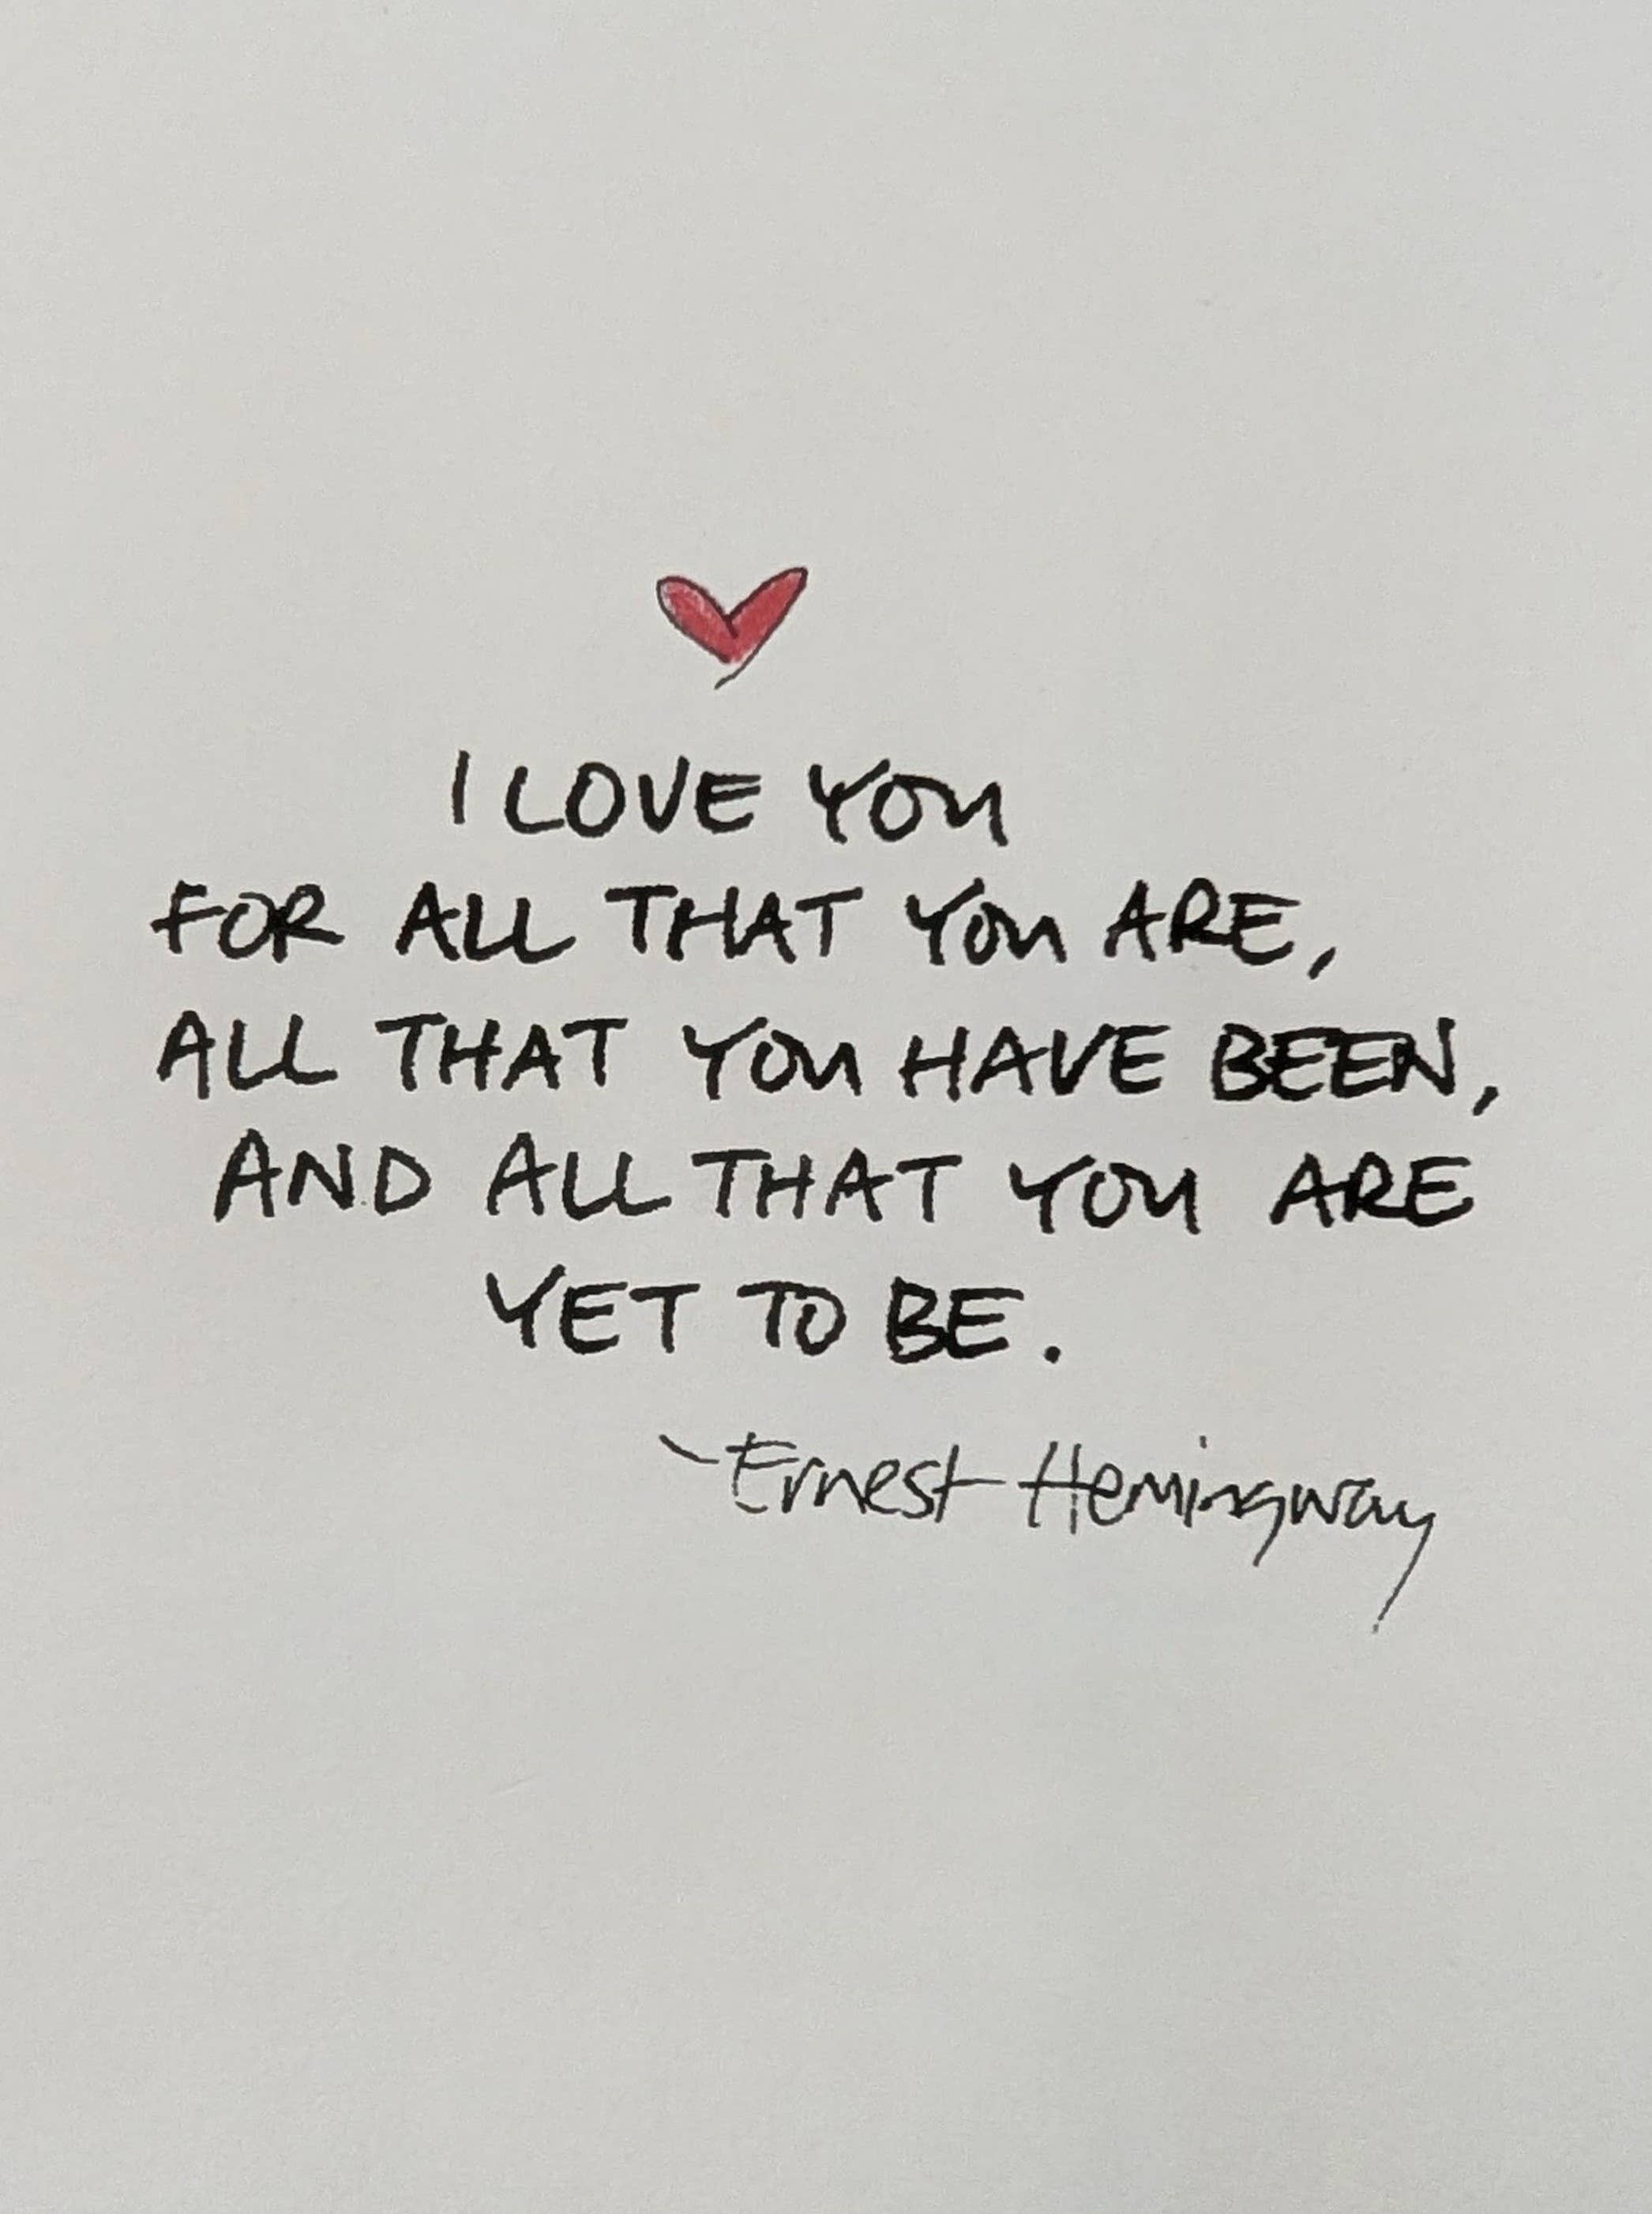 I LOVE YOU
FOR ALL THAT YOU ARE,
ALL THAT YOU HAVE BEEN,
AND ALL THAT YOU ARE
YET TO BE.
-Ernest Hemingway